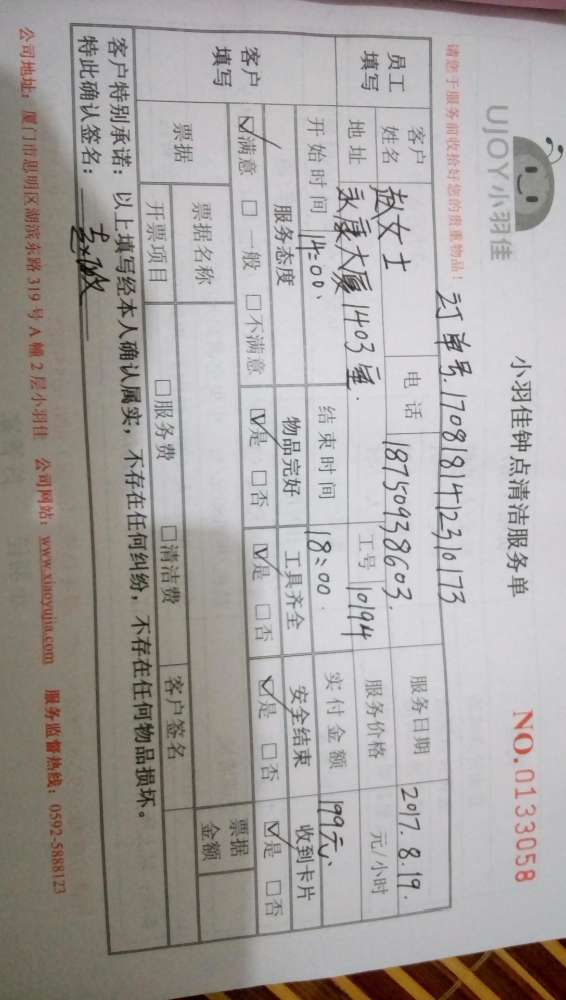 UJOY小羽佳
小羽佳钟点清洁服务单
NO.0133058
请您于服务前收拾好您的贵重物品！
订单号.1708181412310173
员工填写
客户姓名 赵女士 电话 18750938603. 服务日期 2017.8.19.
地址 永康大厦1403室. 工号 10194 服务价格 元/小时
开始时间 14:00、 结束时间 18:00. 实付金额 199元、
客户填写
服务态度 物品完好 工具齐全 安全结束 收到卡片
☑满意 □一般 □不满意 ☑是 □否 ☑是 □否 ☑是 □否 ☑是 □否
票据 票据名称 票据金额
开票项目 □服务费 □清洁费 客户签名
客户特别承诺：以上填写经本人确认属实，不存在任何纠纷，不存在任何物品损坏。
特此确认签名：
公司地址：厦门市思明区湖滨东路319号A幢2层小羽佳 公司网站：www.xiaoyujia.com 服务监督热线：0592-5888123